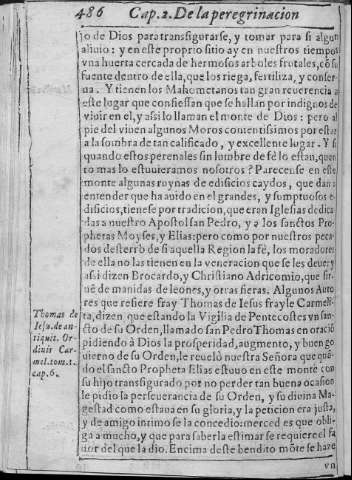 486 Cap. 2. De la peregrinacion
jo de Dios para transfigurarse, y tomar para si algun
aliuio: y en este proprio sitio ay en nuestros tiempos
vna huerta cercada de hermosos arboles frutales, cõ su
fuente dentro de ella, que los riega, fertiliza, y conser-
ua. Y tienen los Mahometanos tan gran reuerencia a
este lugar que confiessan que se hallan por indignos de
viuir en el, y assi lo llaman el monte de Dios: pero al
pie del viuen algunos Moros contentissimos por estar
a la sombra de tan calificado, y excellente lugar. Y si
quando estos perenales sin lumbre de fé lo estan, quen
to mas lo estuuieramos nosotros? Parecense en este
monte algunas ruynas de edificios caydos, que dan a
entender que ha auido en el grandes, y sumptuosos e-
dificios, tienese por tradicion, que eran Iglesias dedica
das a nuestro Apostol san Pedro, y a los sanctos Pro-
phetas Moyses, y Elias: pero como por nuestros peca-
dos desterró de si aquella Region la fè, los moradores
de ella no las tienen en la veneracion que se les deue: y
assi dizen Brocardo, y Christiano Adricomio, que sir-
uē de manidas de leones, y otras fieras. Algunos Auto
res que refiere fray Thomas de Iesus frayle Carmeli-
ta, dizen que estando la Vigilia de Pentecostes vn san-
cto de su Orden, llamado san Pedro Thomas en oració
pidiendo à Dios la prosperidad, augmento, y buen go
uierno de su Orden, le reueló nuestra Señora que quã-
do el sancto Propheta Elias estuuo en este monte con
su hijo transfigurado por no perder tan buena ocasion
le pidio la perseuerancia de su Orden, y su diuina Ma-
gestad como estaua en su gloria, y la peticion era justa,
y de amigo intimo se la concedio: merced es que obli-
ga a mucho, y que para saberla estimar se requiere el fa
uor del que la dio. Encima deste bendito mõte se haze
vn
Thomas de
Iesu. de an-
tiquit. Or-
dinis Car-
mel. tom. 1.
cap. 6.